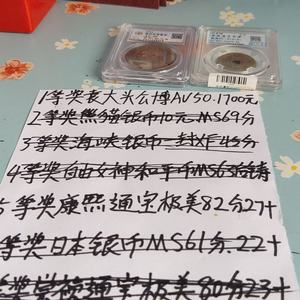 1等奖袁大头公博AU50.1700元
2等奖熊猫银币10元MS69分
3等奖海峡银币一封XF45分
4等奖自由女神和平币MS63
5等奖康熙通宝极美82分27+
等奖日本银币MS61分.22+
等奖 通宝极美80分23+